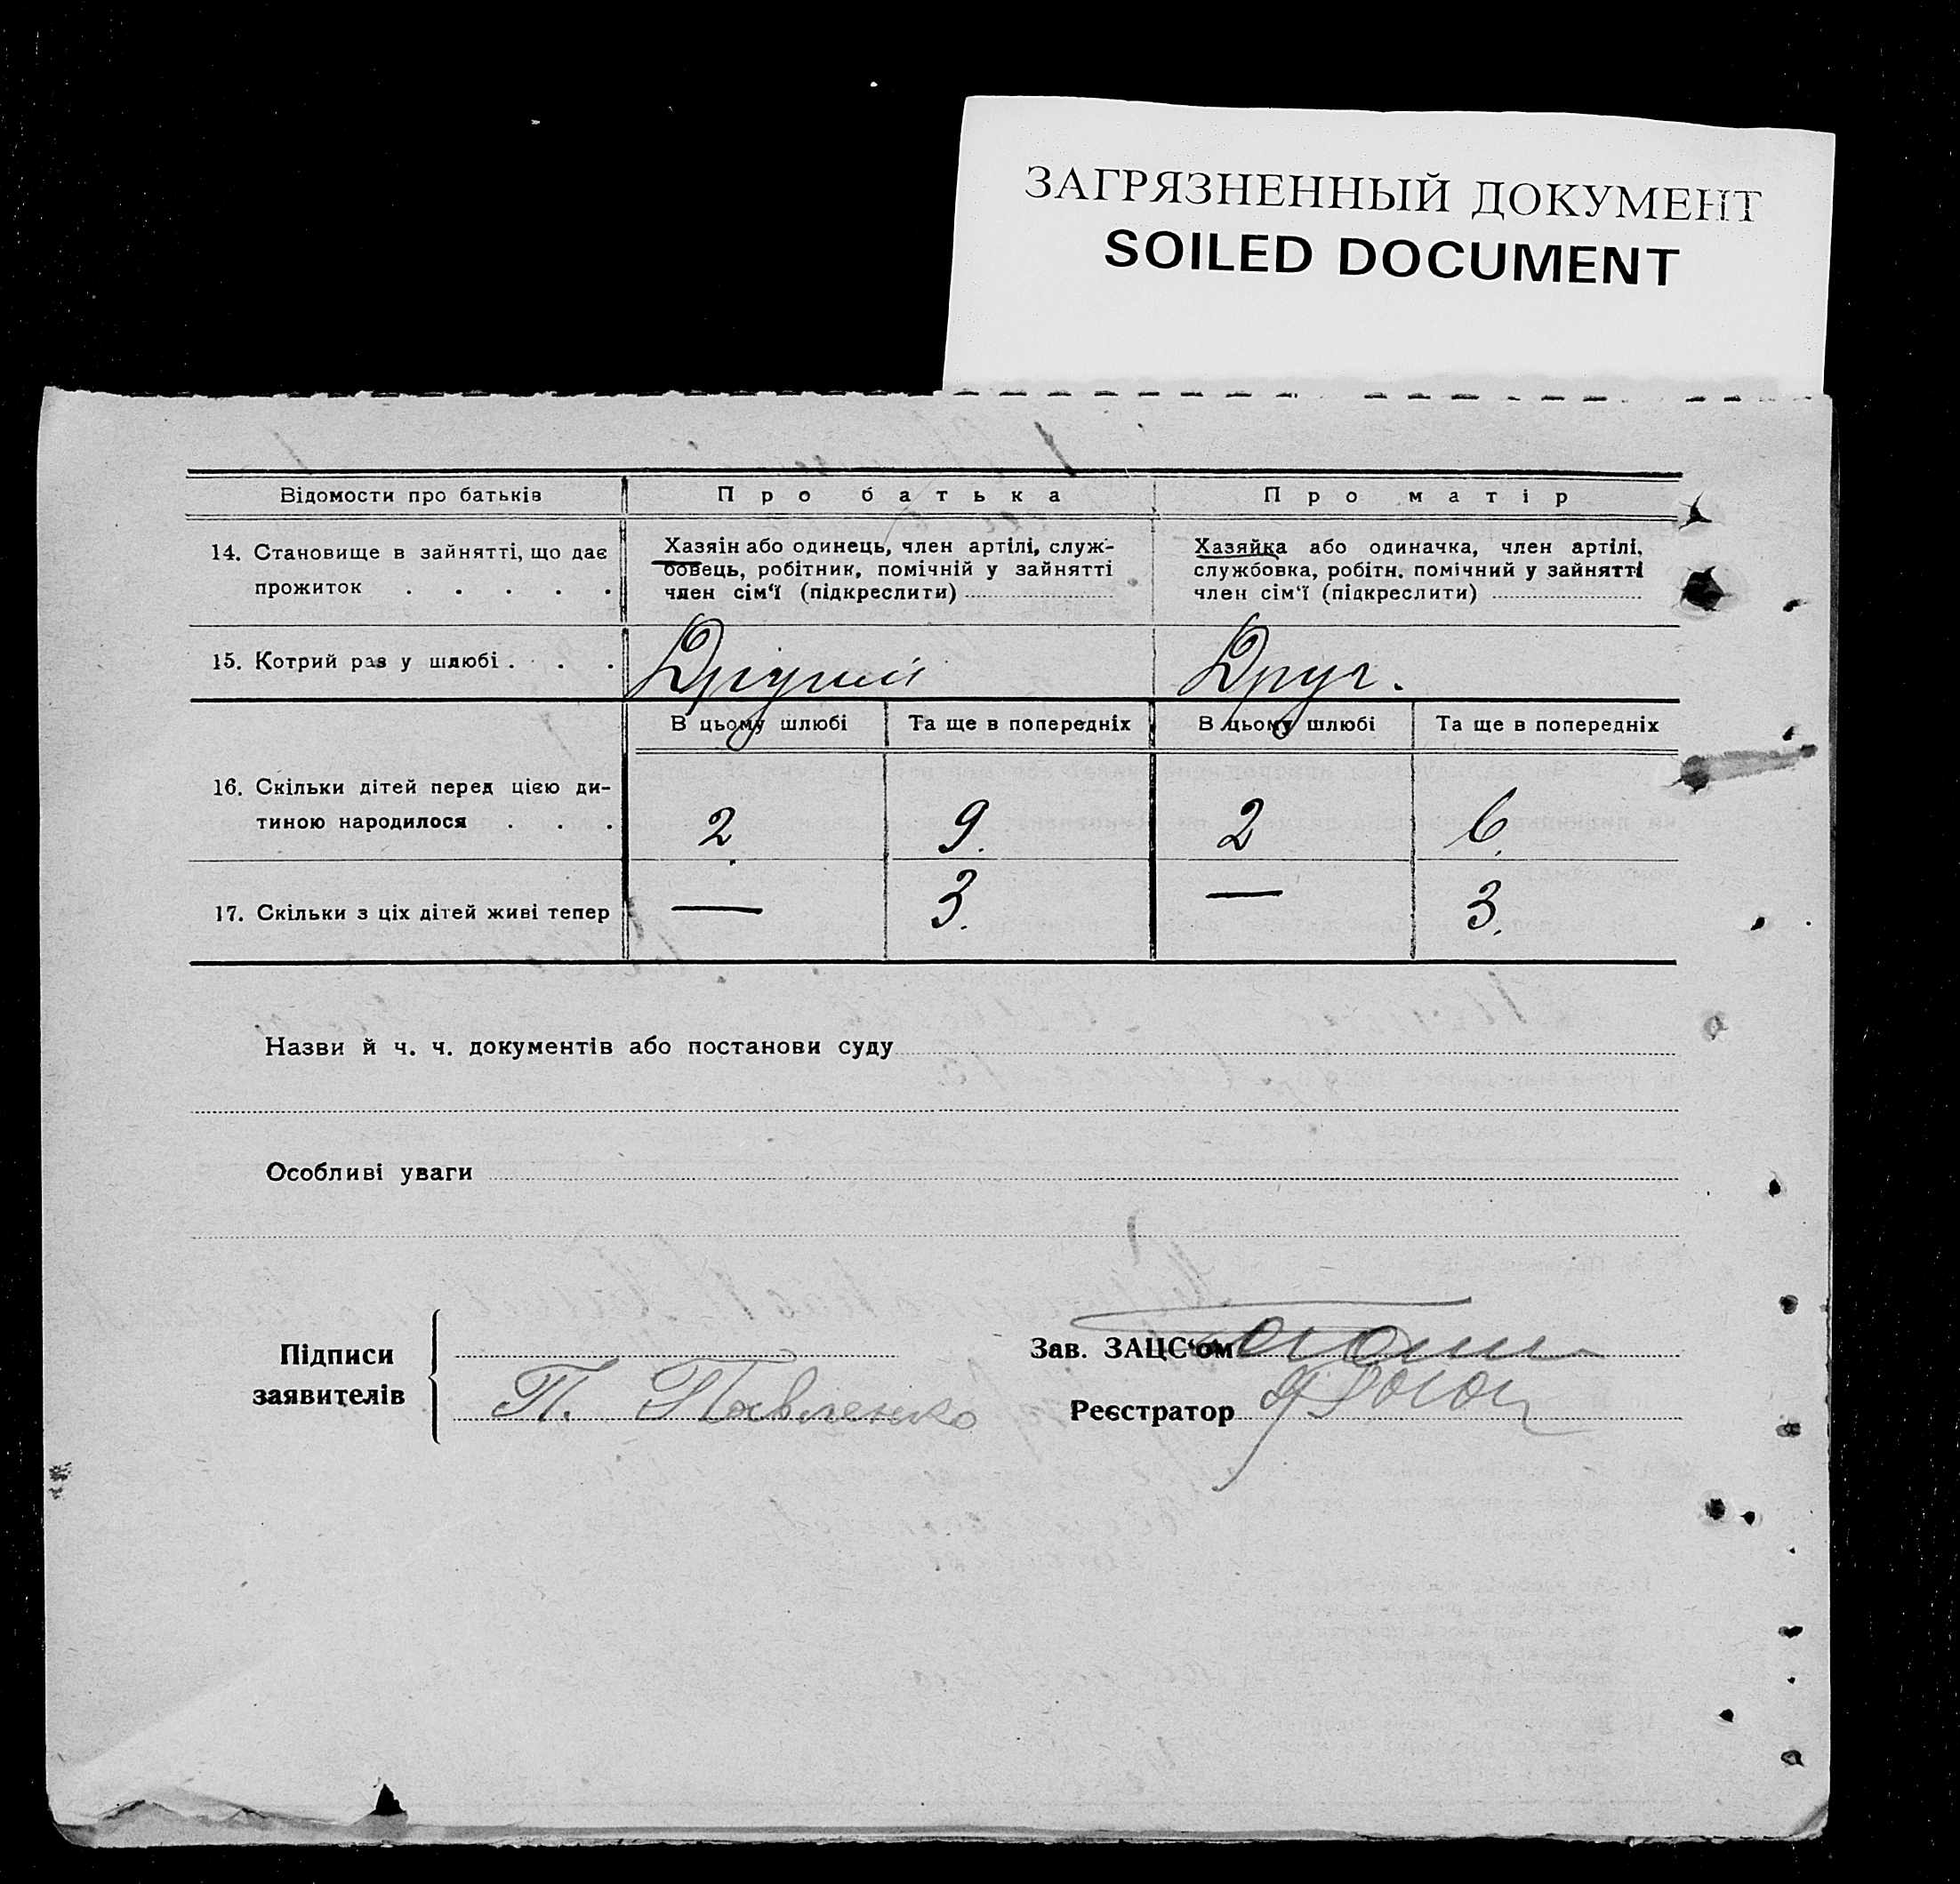 ЗАГРЯЗНЕННЫЙ ДОКУМЕНТ
SOILED DOCUMENT
Відомости про батьків
Про батька
Про матір
14. Становище в зайнятті, що дає
прожиток . . . . .
Хазяін або одинець, член артілі, служ-
бовець, робітник, помічній у зайнятті
член сім‘ї (підкреслити)
Хазяйка або одиначка, член артілі,
службовка, робітн. помічний у зайнятті
член сім‘ї (підкреслити)
15. Котрий раз у шлюбі . . .
Другий
Друг.
В цьому шлюбі
Та ще в попередніх
В цьому шлюбі
Та ще в попередніх
16. Скільки дітей перед цією ди-
тиною народилося . . .
2
9.
2
6.
17. Скільки з ціх дітей живі тепер
—
3.
—
3.
Назви й ч. ч. документів або постанови суду
Особливі уваги
Підписи
заявителів
П. Павленко
Зав. ЗАЦС‘ом
Реєстратор